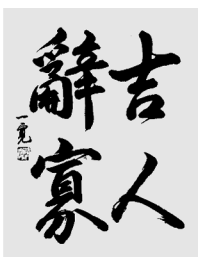 吉人
辭寡
一寬